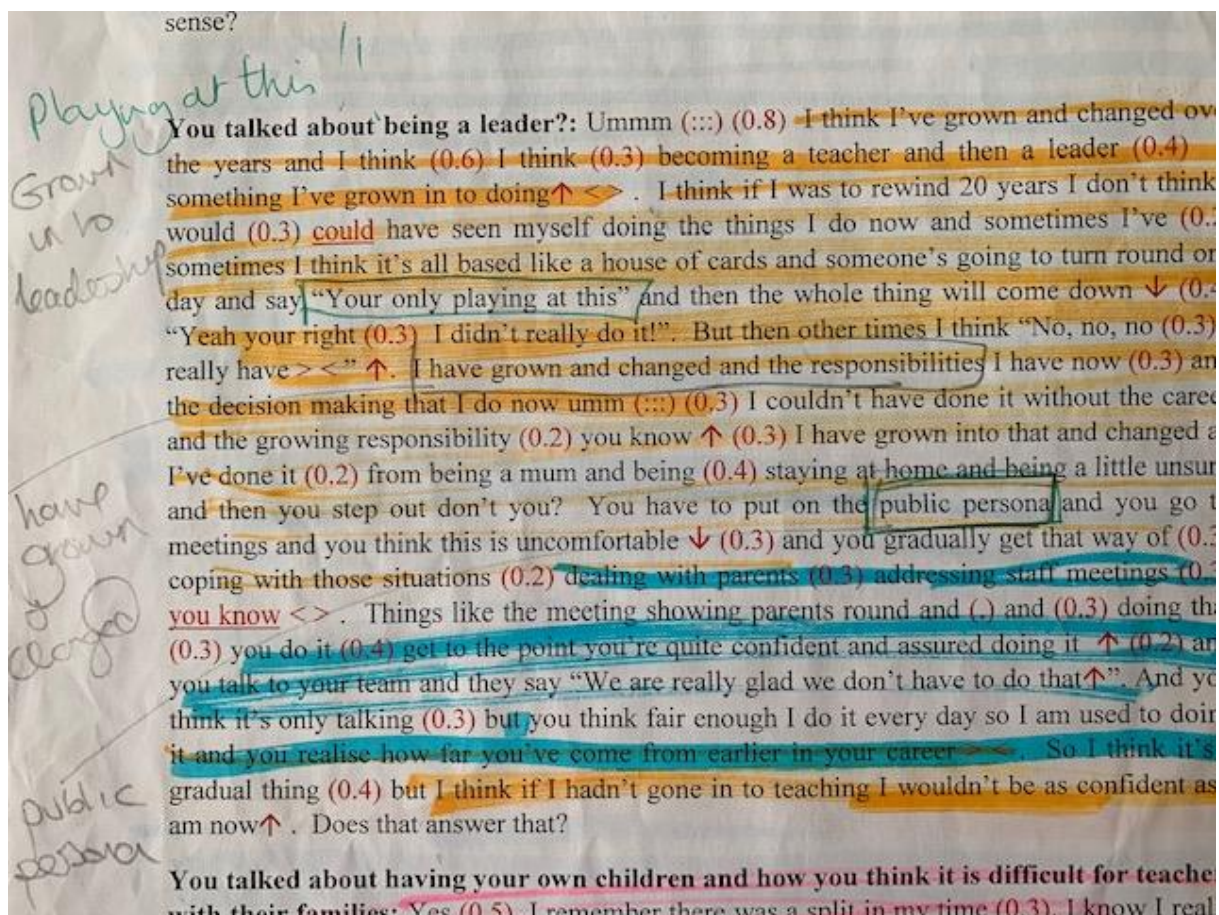 sense?
Playing at this !!
Grown
in to
leadership
You talked about being a leader?: Ummm (:::) (0.8) I think I've grown and changed ov
the years and I think (0.6) I think (0.3) becoming a teacher and then a leader (0.4)
something I've grown in to doing↑ < > . I think if I was to rewind 20 years I don't think
would (0.3) could have seen myself doing the things I do now and sometimes I've (0.
sometimes I think it's all based like a house of cards and someone's going to turn round on
day and say "Your only playing at this" and then the whole thing will come down ↓ (0.4
"Yeah your right (0.3) I didn't really do it!". But then other times I think "No, no, no (0.3)
really have > <" ↑. I have grown and changed and the responsibilities I have now (0.3) an
the decision making that I do now umm (:::) (0.3) I couldn't have done it without the caree
and the growing responsibility (0.2) you know ↑ (0.3) I have grown into that and changed a
I've done it (0.2) from being a mum and being (0.4) staying at home and being a little unsur
and then you step out don't you? You have to put on the public persona and you go t
meetings and you think this is uncomfortable ↓ (0.3) and you gradually get that way of (0.3
coping with those situations (0.2) dealing with parents (0.3) addressing staff meetings (0.3
you know < > . Things like the meeting showing parents round and (.) and (0.3) doing tha
(0.3) you do it (0.4) get to the point you're quite confident and assured doing it ↑ (0.2) an
you talk to your team and they say "We are really glad we don't have to do that↑". And yo
think it's only talking (0.3) but you think fair enough I do it every day so I am used to doin
it and you realise how far you've come from earlier in your career > < So I think it's
gradual thing (0.4) but I think if I hadn't gone in to teaching I wouldn't be as confident as
am now↑ . Does that answer that?
have
grown
&
changed
public
persona
You talked about having your own children and how you think it is difficult for teache
with their families: Yes (0.5) I remember there was a split in my time (0.3) I know I real